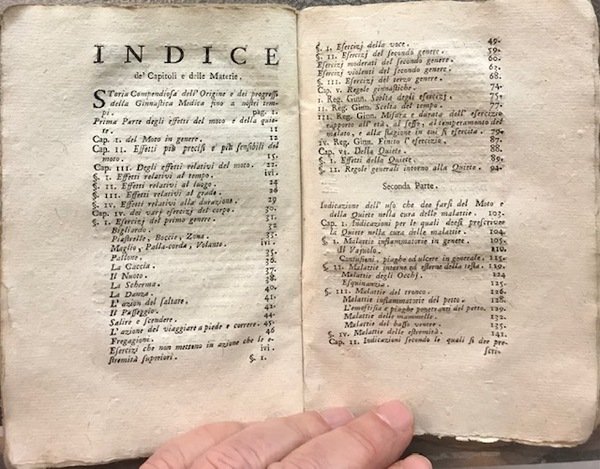 INDICE
de' Capitoli e delle Materie.
STоria Compendiosa dell'Origine e dei progressi
della Ginnastica Medica fino a nostri tem-
pi. pag. 1.
Prima Parte degli effetti del moto e della quie-
te. 11
Cap. I. del Moto in genere. 12
Cap. II. Effetti più precisi e più sensibili del
moto. 15.
Cap. III. Degli effetti relativi del moto. 22.
§. I. Effetti relativi al tempo. ivi.
§. II. Effetti relativi al luogo. 24
§. III. Effetti relativi al grado. 26
§. IV. Effetti relativi alla durazione. 29
Cap. IV. dei varj esercizj del corpo. 30.
§. I. Esercizj del primo genere. 31.
Bigliardo. 32.
Piastrelle, Boccie, Zona. 33.
Maglio, Palla-corda, Volanto. ivi.
Pallone. 35.
La Caccia. 36.
Il Nuoto. 37.
La Scherma. 38.
La Danza. 40.
L'azion del saltare. 41.
Il Passeggio. 42.
Salire e scendere. 44.
L'azione del viaggiare a piede e correre. 45.
Fregagioni. 46
Esercizj che non mettono in azione che le e-
stremità superiori. ivi.
§. I.
§. I. Esercizj della voce. 49.
§. II. Esercizj del secondo genere. 59.
Esercizj moderati del secondo genere. 60.
Esercizj violenti del secondo genere. 63.
§. III. Esercizj del terzo genere. 68.
Cap. V. Regole ginnastiche. 74.
I. Reg. Ginn. Scelta degli esercizj. 75.
II. Reg. Ginn. Scelta del tempo. 77.
III. Reg. Ginn. Misura e durata dell'esercizio
rapporto all'età, al sesso, al temperamento del
malato, e alla stagione in cui si esercita. 79.
IV. Reg. Ginn. Finito l'esercizio. 87.
Cap. VI. Della Quiete. 88.
§. I. Effetti della Quiete. 89.
§. II. Regole generali intorno alla Quiete. 94.
Seconda Parte.
Indicazione dell'uso che dee farsi del Moto e
della Quiete nella cura delle malattie. 103.
Cap. I. Indicazioni per le quali deesi prescrivere
la Quiete nella cura delle malattie. 104.
§. I. Malattie infiammatorie in genere. 105.
Il Vajuolo. 110.
Contusioni, piaghe ed ulcere in generale. 115.
§. II. Malattie interne ed esterne della testa. 119.
Malattie degli Occhj. 124
Esquinanzia. 125.
§. III. Malattie del tronco. 126.
Malattie infiammatorie del petto. 128.
L'emoftisia e piaghe penetranti del petto. 129.
Malattie delle mammelle. 132.
Malattie del basso ventre. 135.
§. IV. Malattie delle estremità. 141.
Cap. II. Indicazioni secondo le quali si dee pre-
scri-